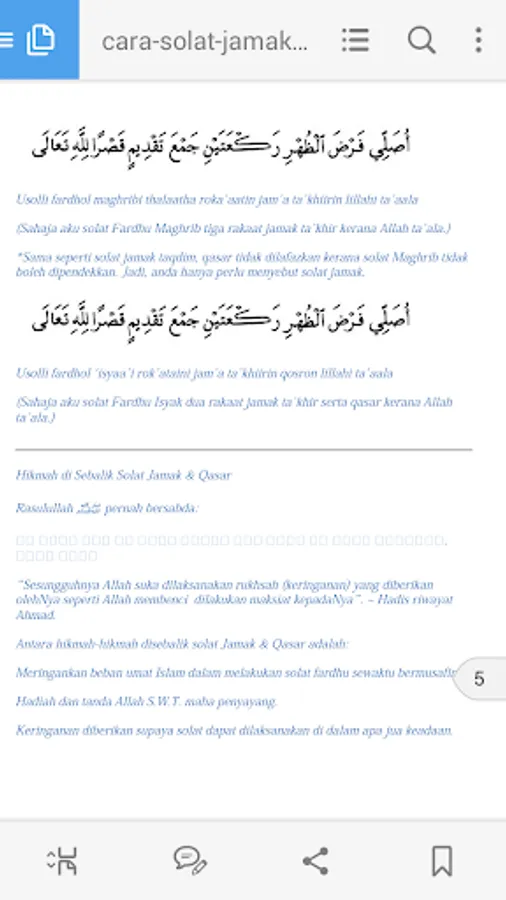 cara-solat-jamak...
أُصَلِّي فَرْضَ ٱلْظُهْرِ رَكْعَتَيْنِ جَمْعَ تَقْدِيمٍ قَصْرًا لِلَّٰهِ تَعَالَى
Usolli fardhol maghribi thalaatha roka'aatin jam'a ta'khiirin lillahi ta'aala
(Sahaja aku solat Fardhu Maghrib tiga rakaat jamak ta'khir kerana Allah ta'ala.)
*Sama seperti solat jamak taqdim, qasar tidak dilafazkan kerana solat Maghrib tidak
boleh dipendekkan. Jadi, anda hanya perlu menyebut solat jamak.
أُصَلِّي فَرْضَ ٱلْظُهْرِ رَكْعَتَيْنِ جَمْعَ تَقْدِيمٍ قَصْرًا لِلَّٰهِ تَعَالَى
Usolli fardhol 'isyaa'i rok'ataini jam'a ta'khiirin qosron lillahi ta'aala
(Sahaja aku solat Fardhu Isyak dua rakaat jamak ta'khir serta qasar kerana Allah
ta'ala.)
Hikmah di Sebalik Solat Jamak & Qasar
Rasulullah ﷺ pernah bersabda:
"Sesungguhnya Allah suka dilaksanakan rukhsah (keringanan) yang diberikan
olehNya seperti Allah membenci dilakukan maksiat kepadaNya". – Hadis riwayat
Ahmad.
Antara hikmah-hikmah disebalik solat Jamak & Qasar adalah:
Meringankan beban umat Islam dalam melakukan solat fardhu sewaktu bermusafir
5
Hadiah dan tanda Allah S.W.T. maha penyayang.
Keringanan diberikan supaya solat dapat dilaksanakan di dalam apa jua keadaan.